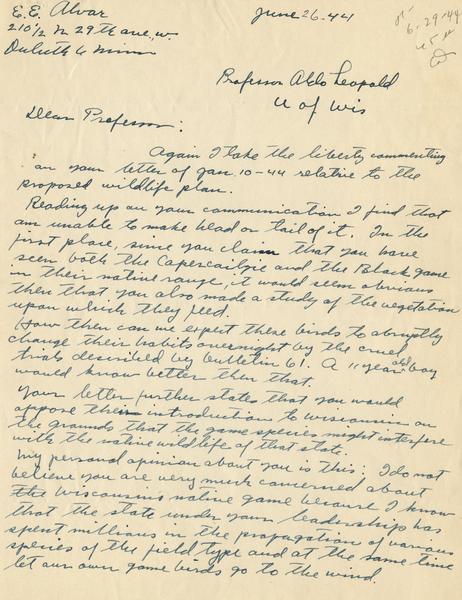 E. E. Alvar
210 1/2 N 29th ave. w.
Duluth 6 Minn
June 26-44
6-29-44
Professor Aldo Leopold
U of Wis
Dear Professor:
Again I take the liberty commenting
on your letter of Jan. 10-44 relative to the
proposed wildlife plan.
Reading up on your communication I find that
am unable to make head or tail of it. In the
first place, since you claim that you have
seen both the Capercailzie and the Black game
in their native range, it would seem obvious
then that you also made a study of the vegetation
upon which they feed.
How then can we expect these birds to abruptly
change their habits overnight by the cruel
trials described by bulletin 61. A 11 year old boy
would know better then that.
Your letter further states that you would
oppose their introduction to Wisconsin on
the grounds that the game species might interfere
with the native wildlife of that state.
My personal opinion about you is this: I do not
believe you are very much concerned about
the Wisconsins native game because I know
that the state under your leadership has
spent millions in the propagation of various
species of the field type and at the same time
let our own game birds go to the wind.